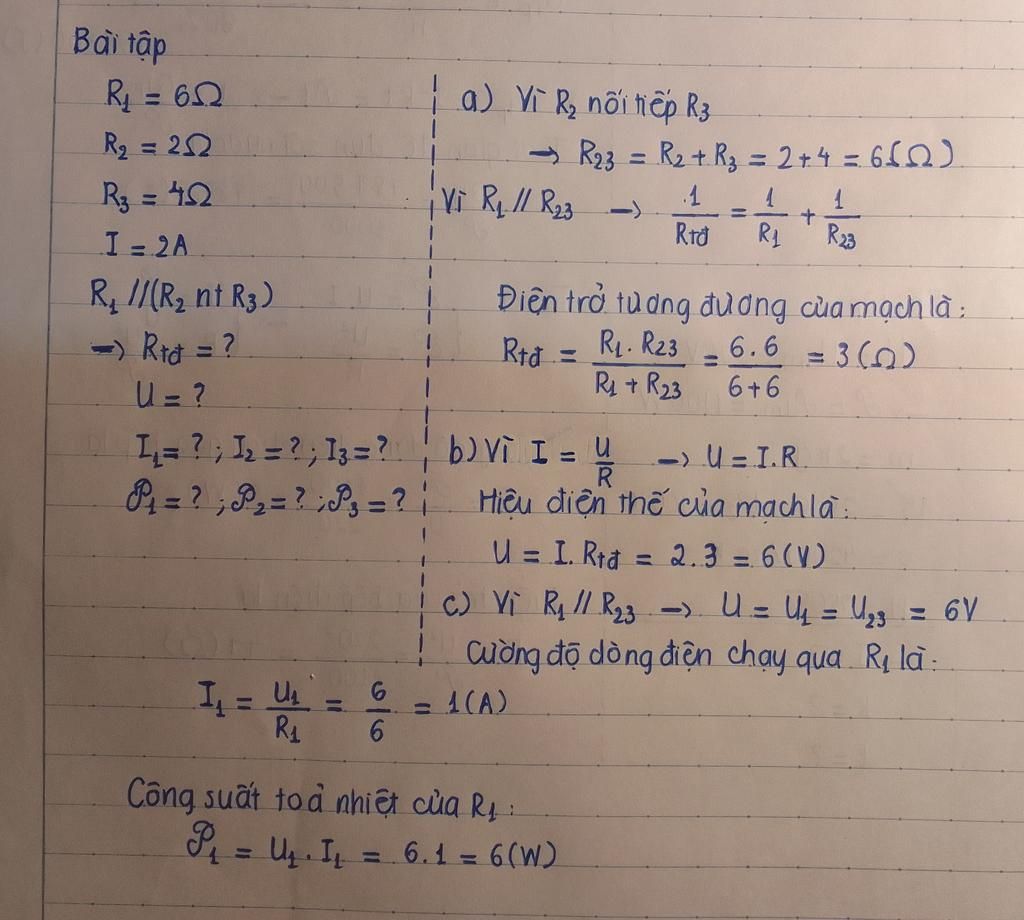 Bài tập
R₁ = 6Ω
R₂ = 2Ω
R₃ = 4Ω
I = 2A
R₁ //(R₂ nt R₃)
→ Rtđ = ?
U = ?
I₁ = ? ; I₂ = ? ; I₃ = ?
𝒫₁ = ? ; 𝒫₂ = ? ; 𝒫₃ = ?
a) Vì R₂ nối tiếp R₃
→ R₂₃ = R₂ + R₃ = 2 + 4 = 6(Ω)
Vì R₁ // R₂₃ → 1/Rtđ = 1/R₁ + 1/R₂₃
Điện trở tương đương của mạch là:
Rtđ = R₁ . R₂₃ / R₁ + R₂₃ = 6 . 6 / 6 + 6 = 3 (Ω)
b) Vì I = U/R → U = I . R
Hiệu điện thế của mạch là:
U = I . Rtđ = 2 . 3 = 6 (V)
c) Vì R₁ // R₂₃ → U = U₁ = U₂₃ = 6V
Cường độ dòng điện chạy qua R₁ là:
I₁ = U₁/R₁ = 6/6 = 1 (A)
Công suất toả nhiệt của R₁:
𝒫₁ = U₁ . I₁ = 6 . 1 = 6 (W)